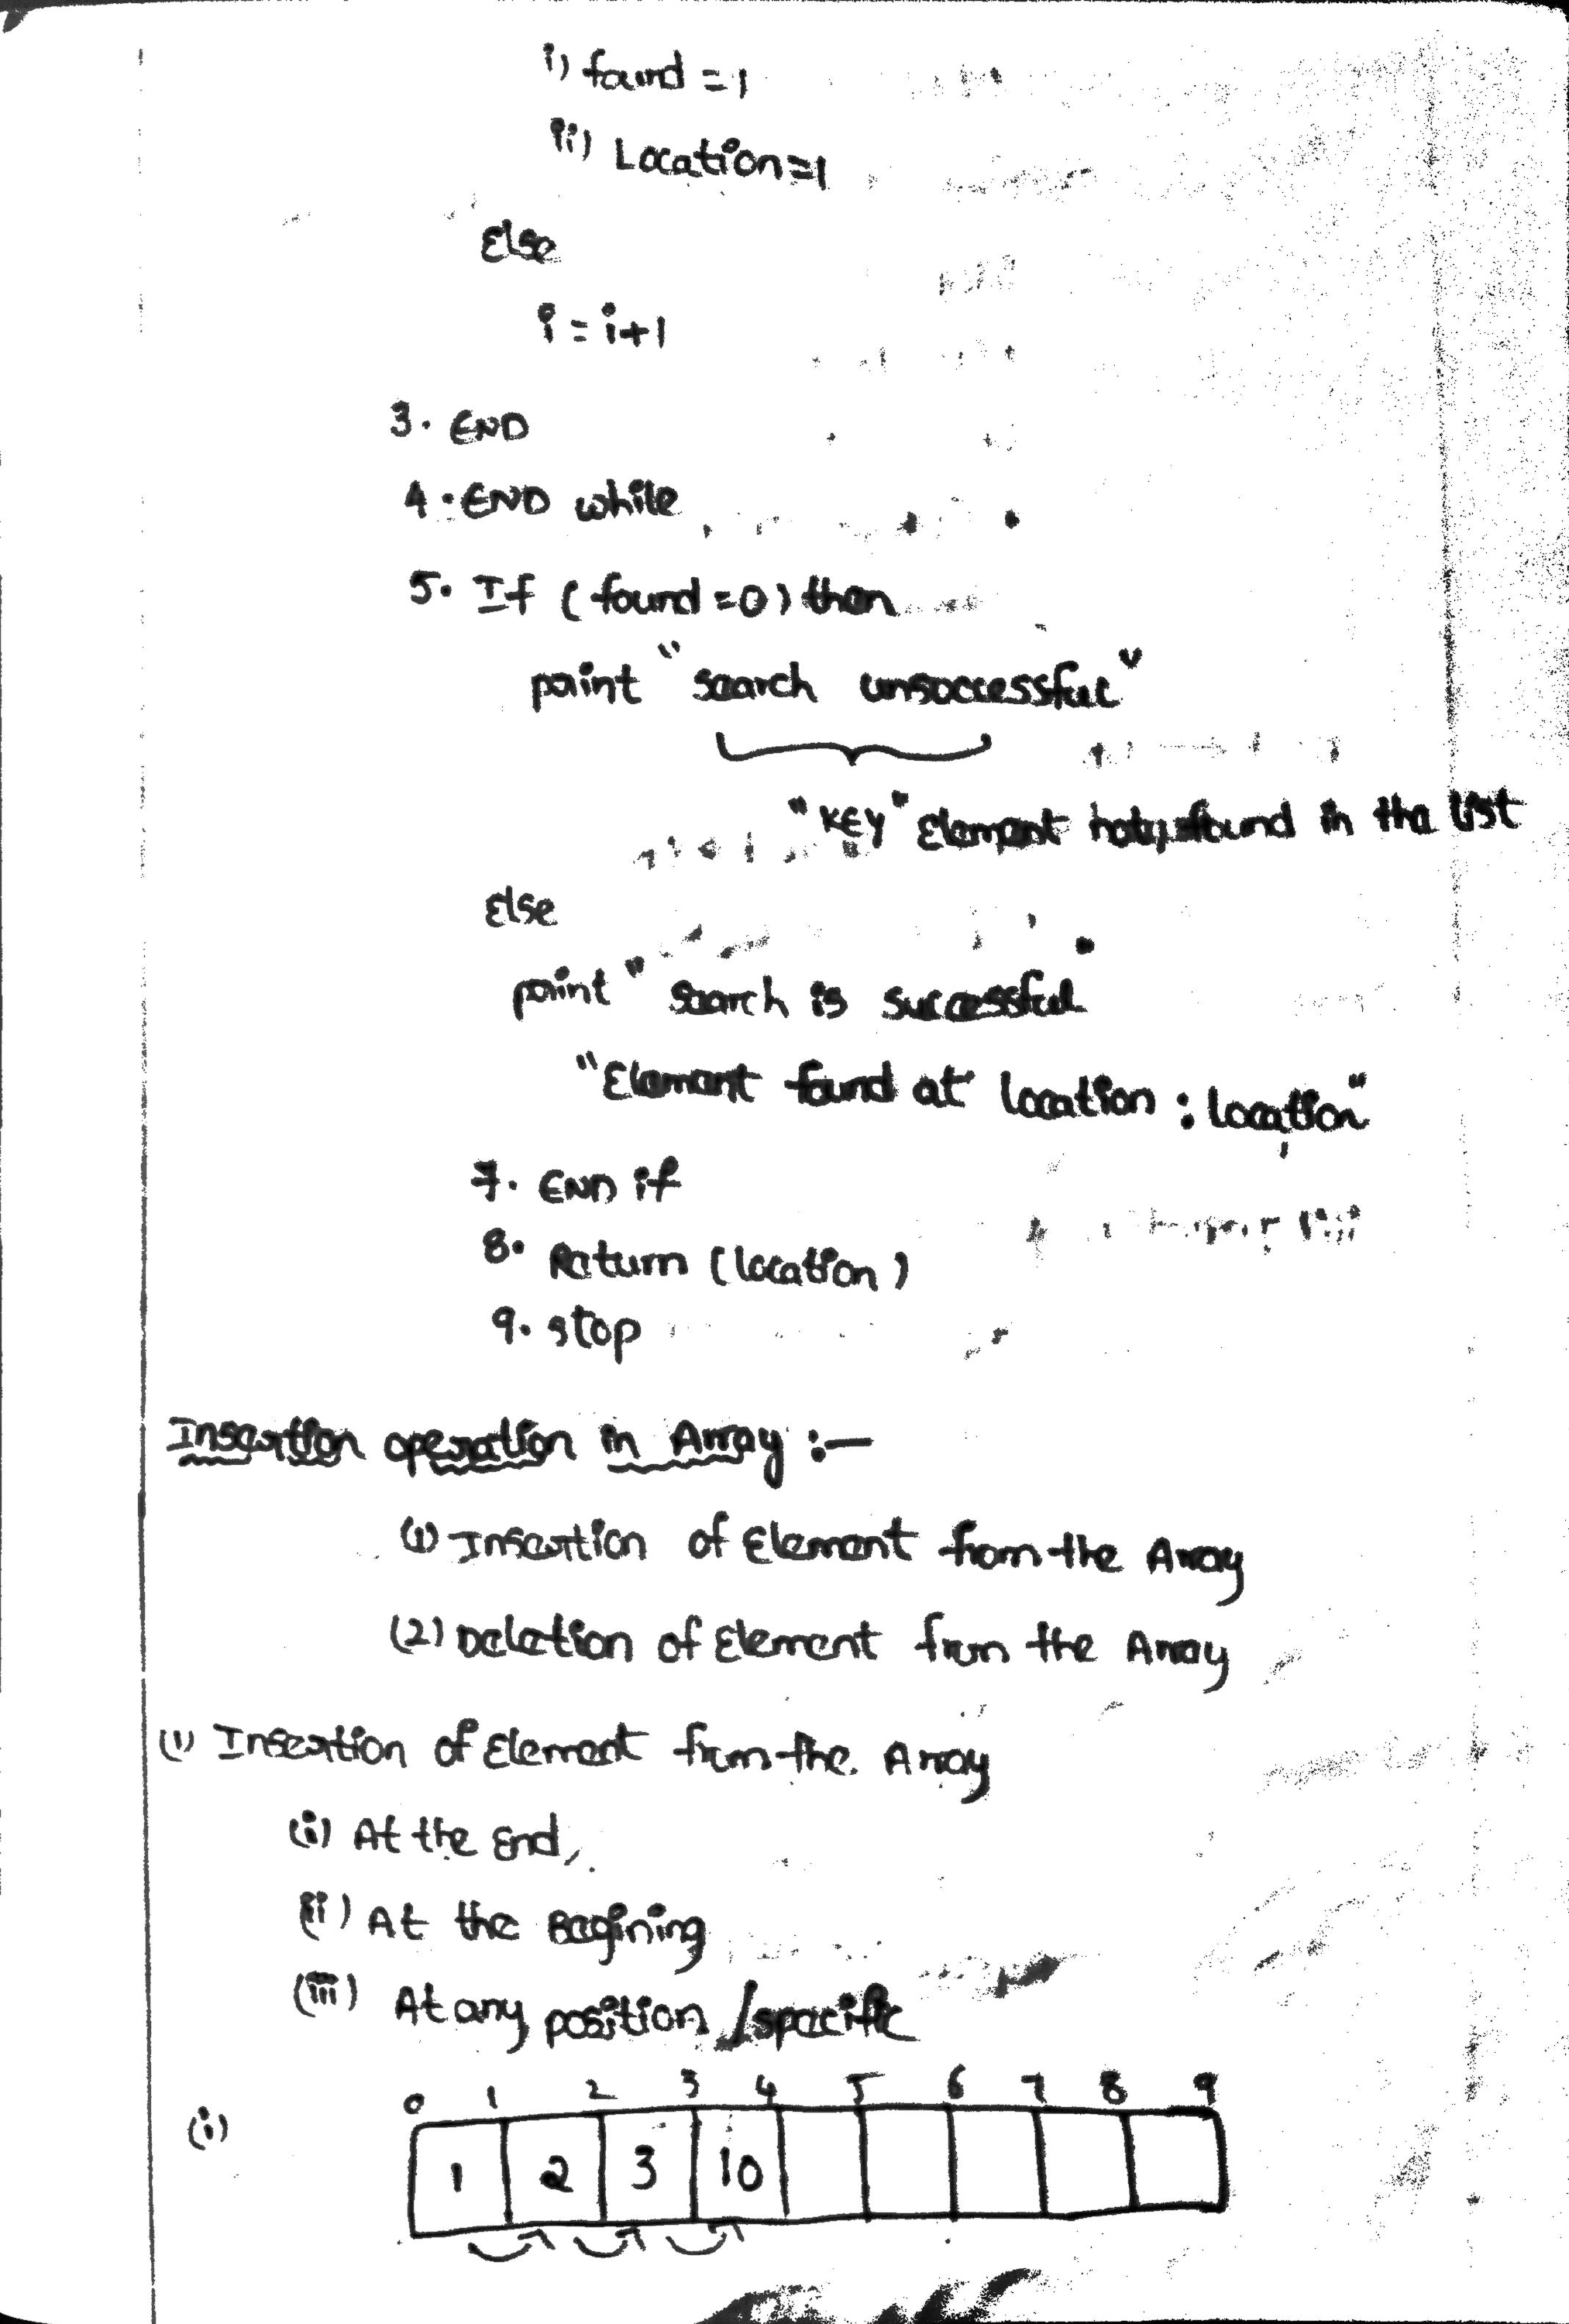 i) found = 1
ii) Location = 1
Else
i = i+1
3. END
4. END while
5. If (found = 0) then
print "search unsoccessful"
"KEY" Element not found in the list
Else
print "search is successful"
"Element found at location : location"
7. END if
8. Return (location)
9. stop
Insertion operation in Array :-
(1) Insertion of Element from the Array
(2) Deletion of Element from the Array
(1) Insertion of Element from the Array
(i) At the End
(ii) At the Begining
(iii) At any position /specific
0 1 2 3 4 5 6 7 8 9
(i) 1 2 3 10